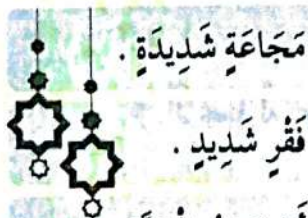 مَجَاعَةٍ شَدِيدَةٍ .
فَقْرٍ شَدِيدٍ .